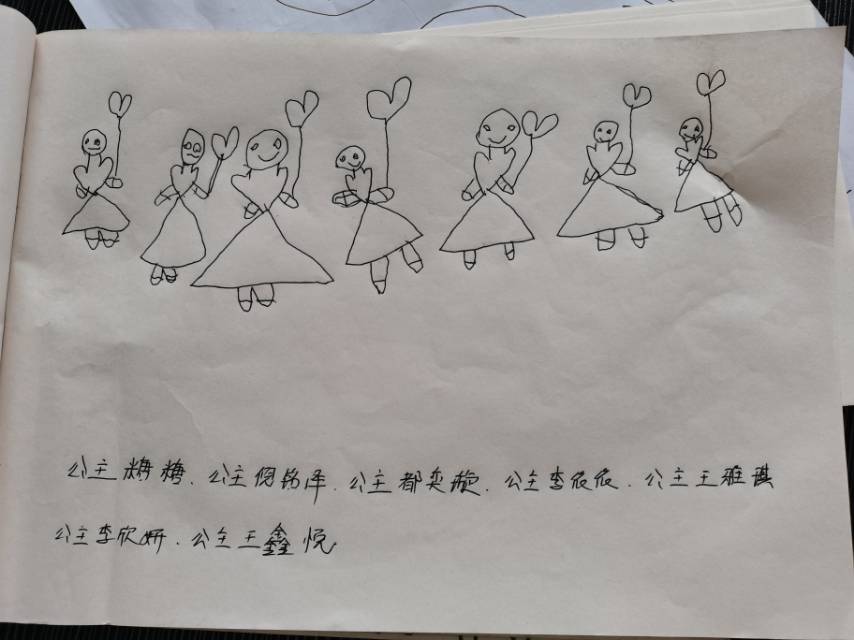 公主糖糖、公主倪铭泽、公主都奕璇、公主李依依、公主王雅琪
公主李欣妍、公主王鑫悦